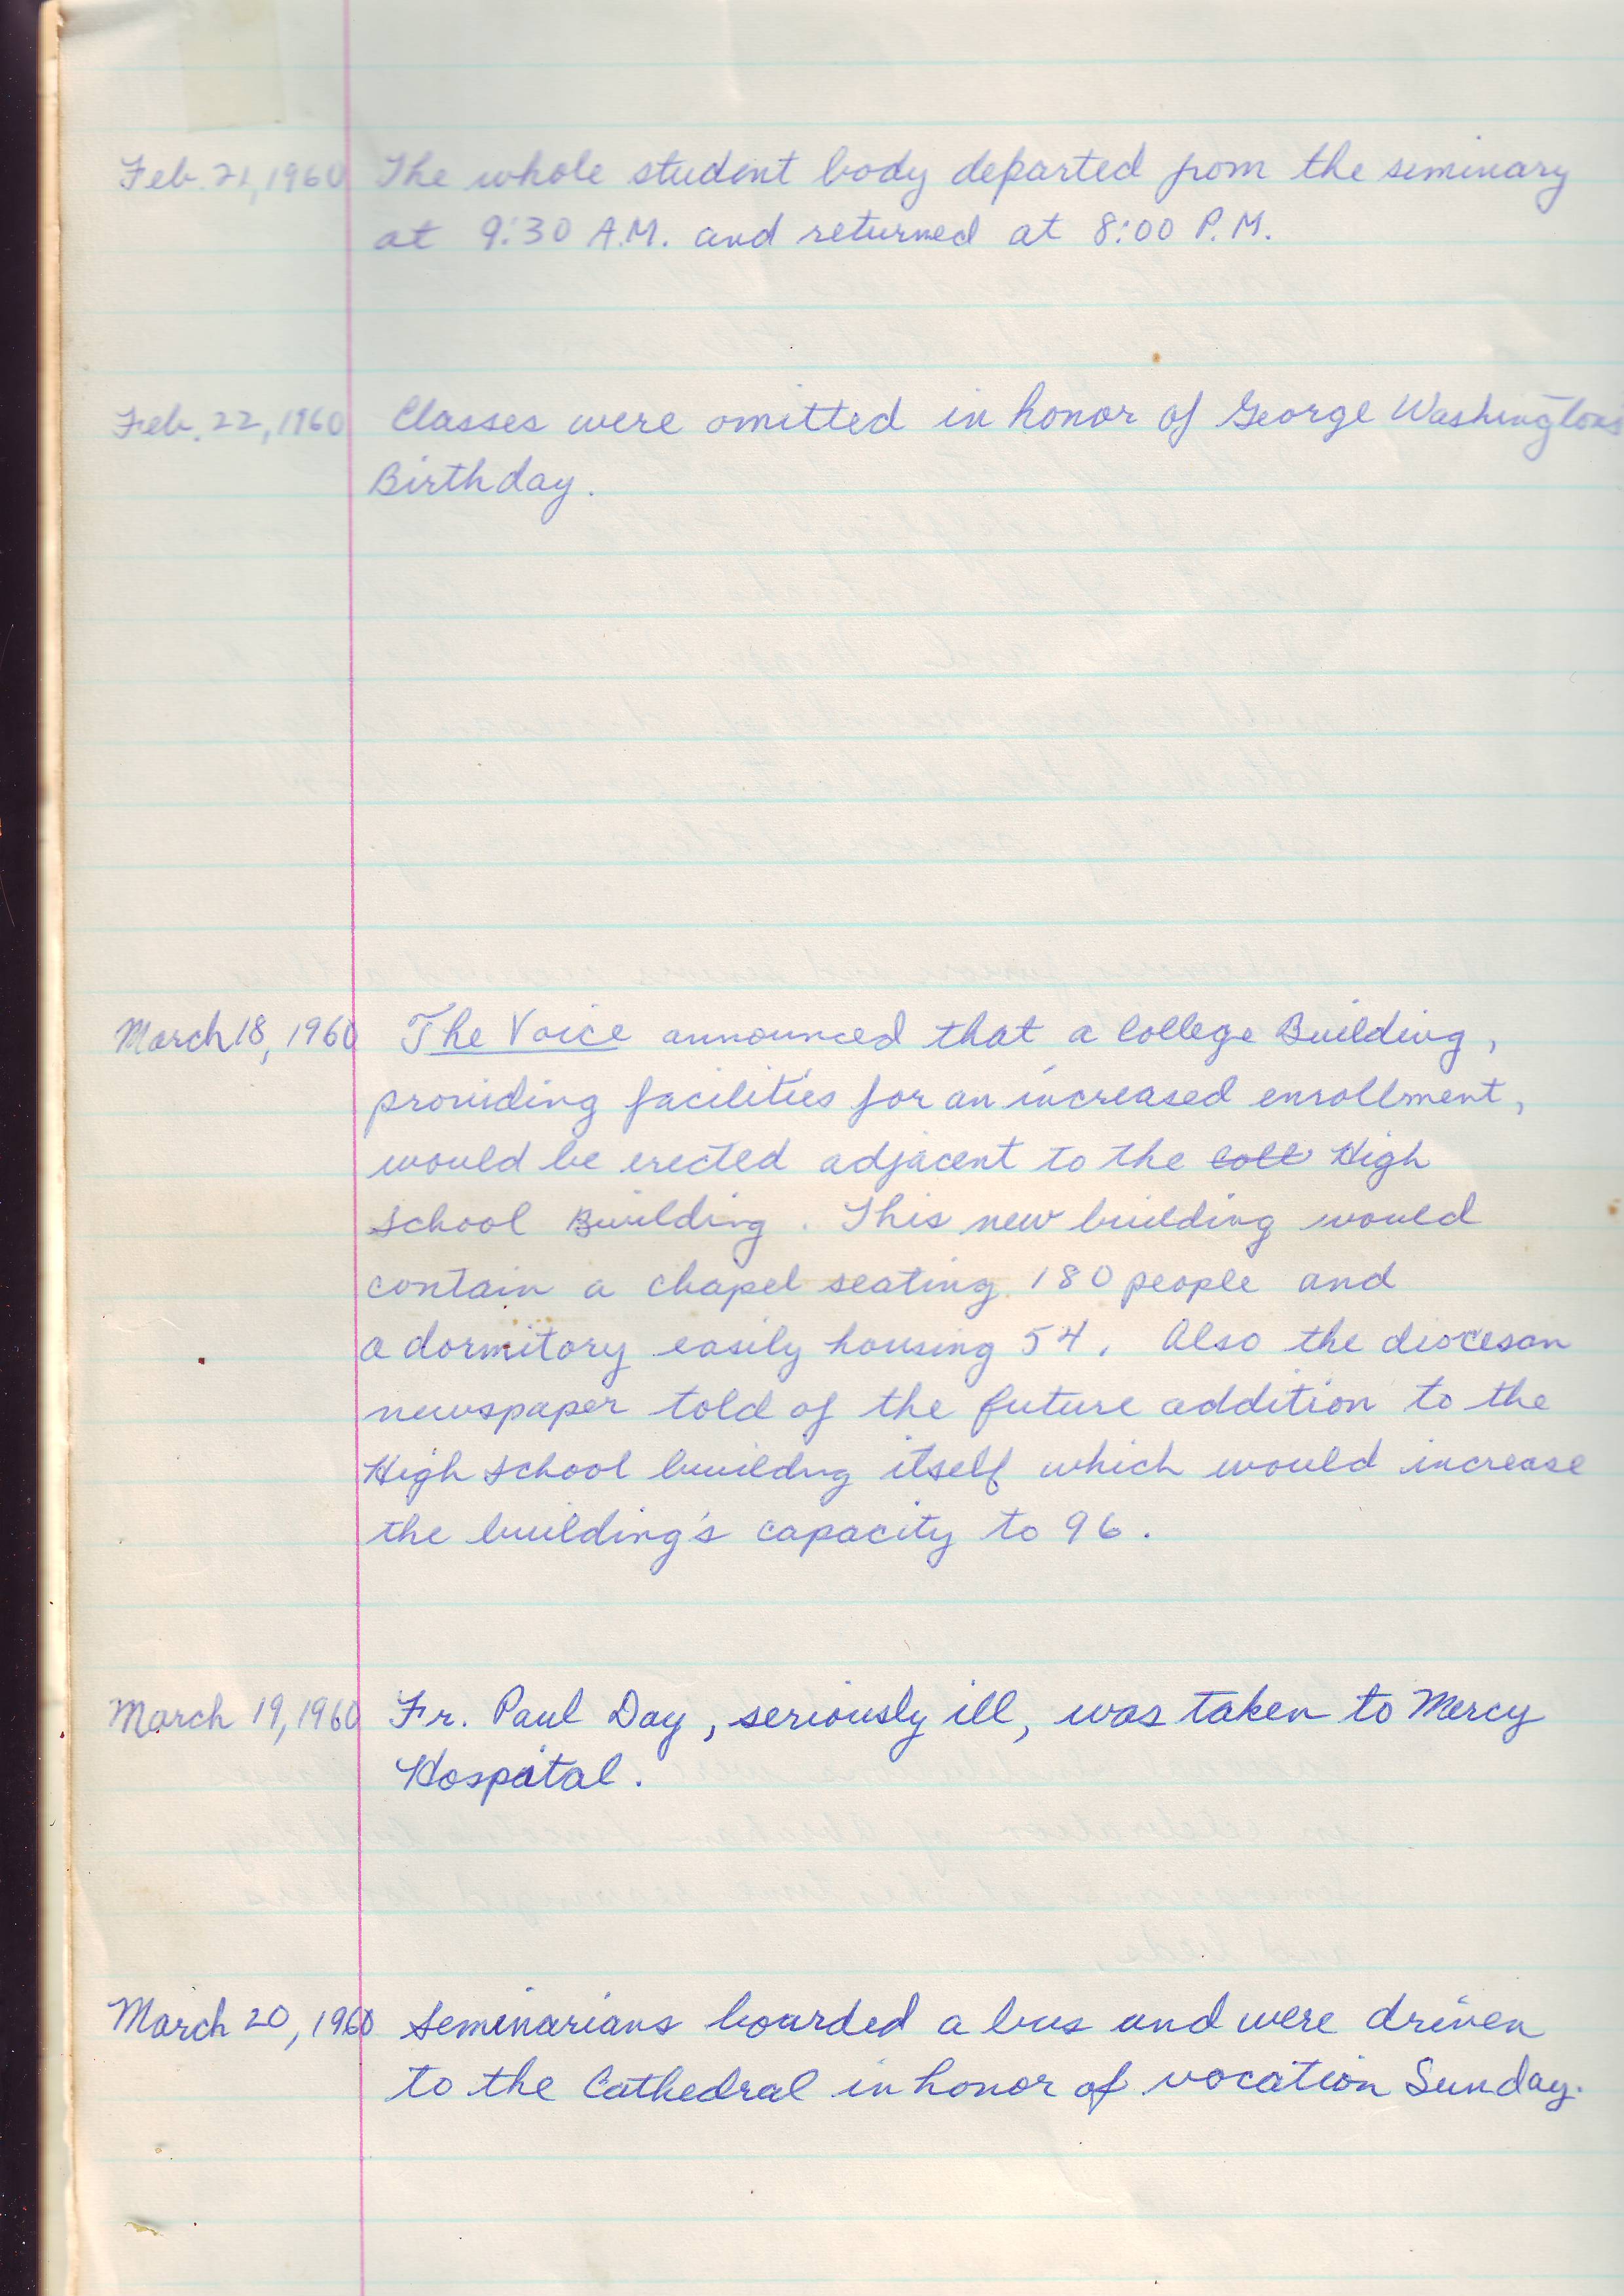 Feb. 21, 1960 The whole student body departed from the seminary
at 9:30 A.M. and returned at 8:00 P.M.
Feb. 22, 1960 Classes were omitted in honor of George Washingtons
Birthday.
March 18, 1960 The Voice announced that a College Building,
providing facilities for an increased enrollment,
would be erected adjacent to the Coll High
School Building. This new building would
contain a chapel seating 180 people and
a dormitory easily housing 54. Also the diocesan
newspaper told of the future addition to the
High School buildng itself which would increase
the building's capacity to 96.
March 19, 1960 Fr. Paul Day, seriously ill, was taken to Mercy
Hospital.
March 20, 1960 Seminarians boarded a bus and were driven
to the Cathedral in honor of vocation Sunday.